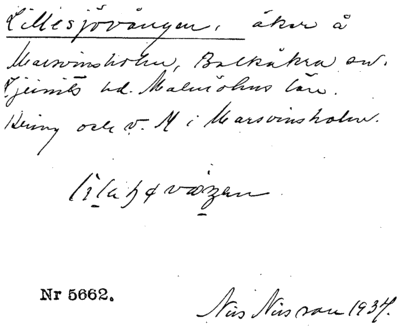 Lillesjövången, åker å
Marsvinsholm, Balkåkra sn.
Ljunits hd. Malmöhus län.
och v. M i Marsvinsholm.
Nr 5662.
Nils Nilsson 1934.